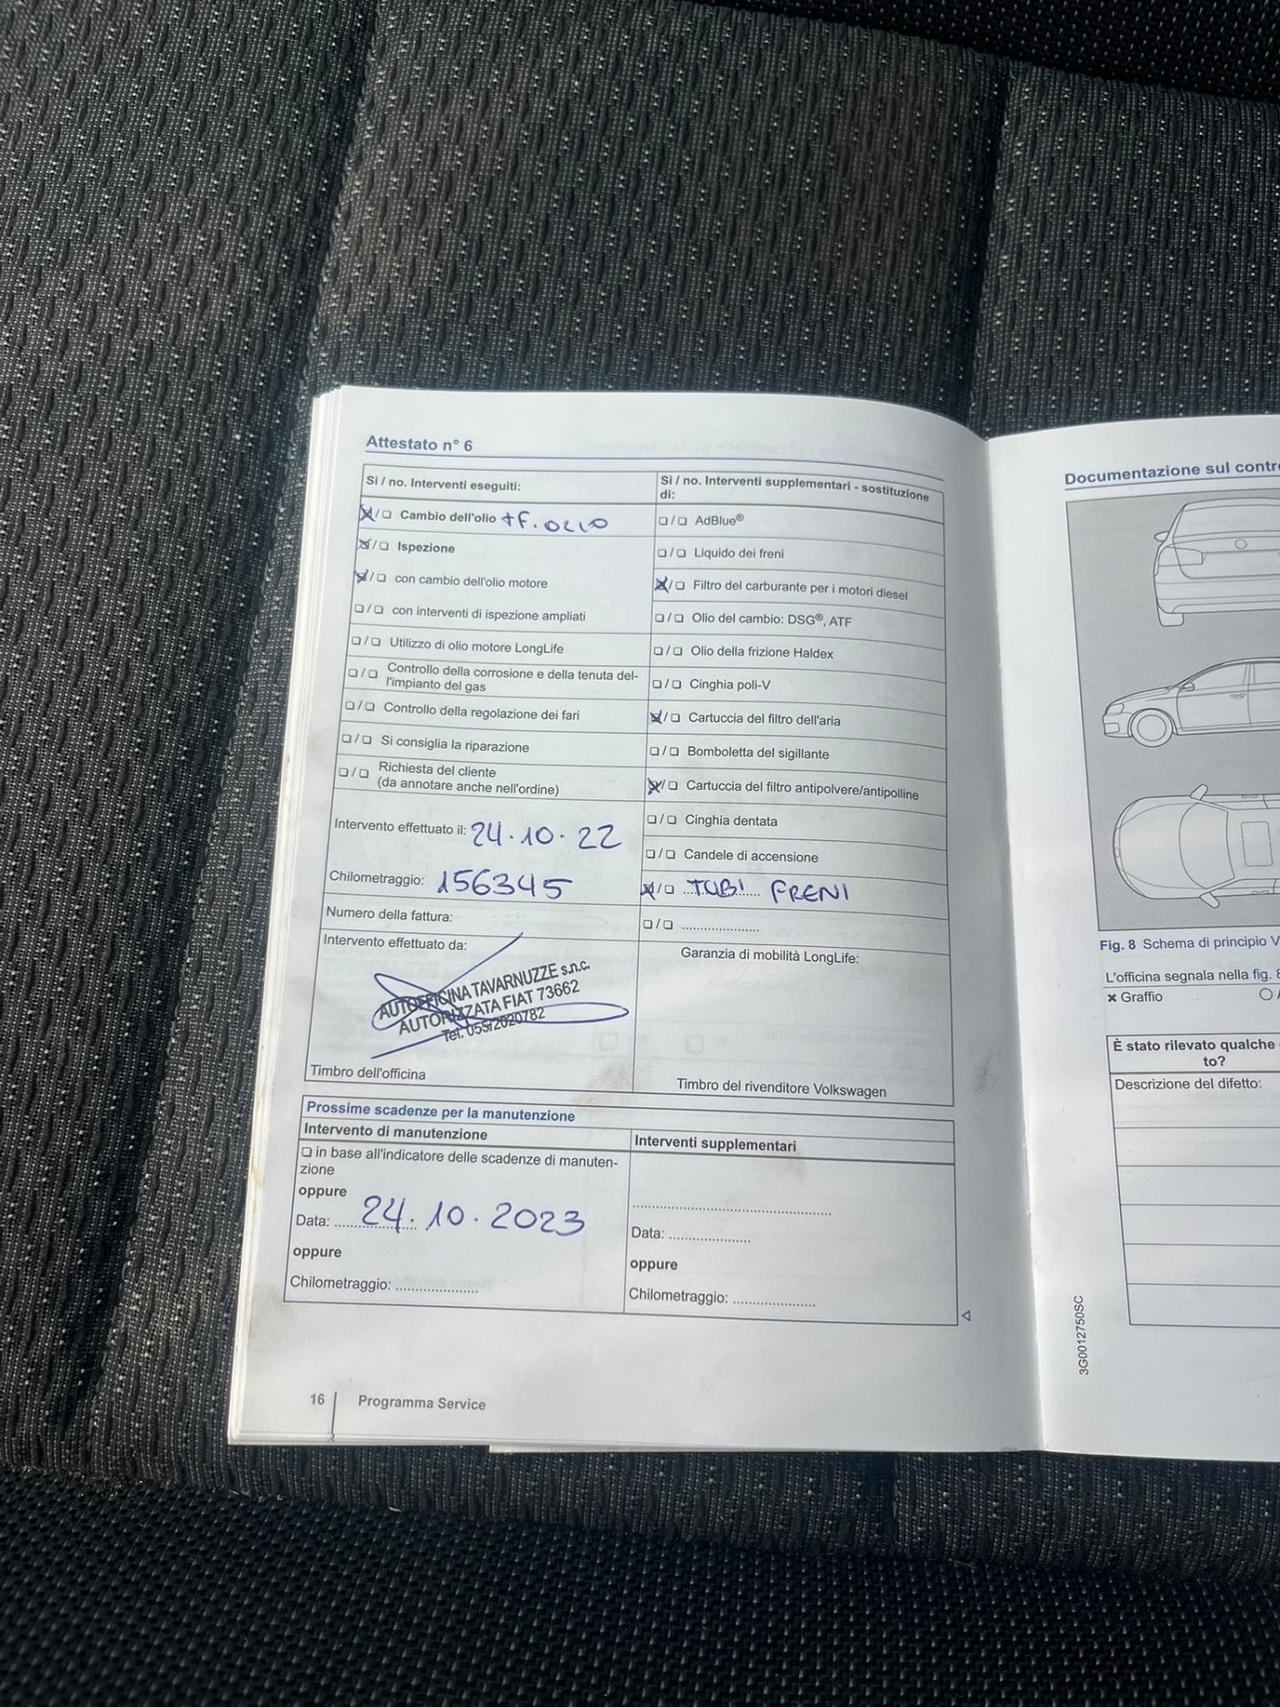 Attestato n° 6
Sì / no. Interventi eseguiti:
☒/❏ Cambio dell'olio +F. OLIO
☒/❏ Ispezione
☒/❏ con cambio dell'olio motore
❏/❏ con interventi di ispezione ampliati
❏/❏ Utilizzo di olio motore LongLife
❏/❏ Controllo della corrosione e della tenuta del-
l'impianto del gas
❏/❏ Controllo della regolazione dei fari
❏/❏ Si consiglia la riparazione
❏/❏ Richiesta del cliente
(da annotare anche nell'ordine)
Intervento effettuato il: 24.10.22
Chilometraggio: 156345
Numero della fattura:
Intervento effettuato da:
AUTOFFICINA TAVARNUZZE s.n.c.
AUTORIZZATA FIAT 73662
Tel. 055/2020782
Timbro dell'officina
Sì / no. Interventi supplementari - sostituzione
di:
❏/❏ AdBlue®
❏/❏ Liquido dei freni
☒/❏ Filtro del carburante per i motori diesel
❏/❏ Olio del cambio: DSG®, ATF
❏/❏ Olio della frizione Haldex
❏/❏ Cinghia poli-V
☒/❏ Cartuccia del filtro dell'aria
❏/❏ Bomboletta del sigillante
☒/❏ Cartuccia del filtro antipolvere/antipolline
❏/❏ Cinghia dentata
❏/❏ Candele di accensione
☒/❏ TUBI FRENI
❏/❏ ....................
Garanzia di mobilità LongLife:
Timbro del rivenditore Volkswagen
Prossime scadenze per la manutenzione
Intervento di manutenzione
❏ in base all'indicatore delle scadenze di manuten-
zione
oppure
Data: 24.10.2023
oppure
Chilometraggio: .....................
Interventi supplementari
..................................................
Data: ....................
oppure
Chilometraggio: ....................
16
Programma Service
Documentazione sul contr
Fig. 8 Schema di principio V
L'officina segnala nella fig. 8
× Graffio
È stato rilevato qualche
to?
Descrizione del difetto:
3G0012750SC